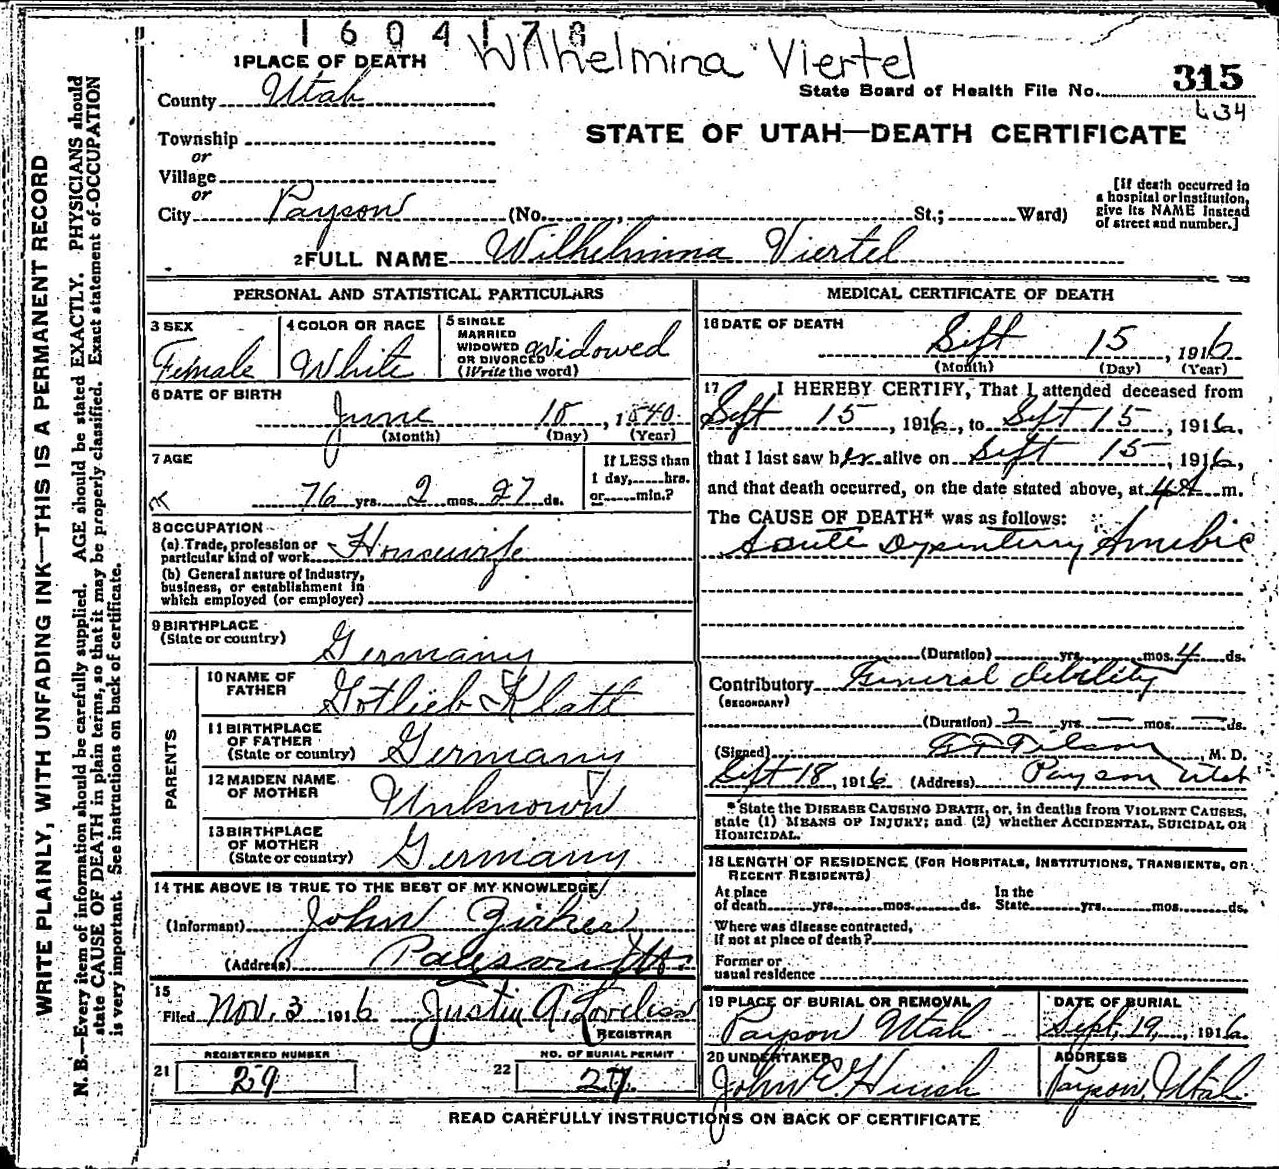 1604178
Wilhelmina Viertel
1 PLACE OF DEATH
County Utah
State Board of Health File No. 315
634
Township
or
STATE OF UTAH—DEATH CERTIFICATE
Village
or
City Payson (No. , St.; Ward)
[If death occurred in
a hospital or institution,
give its NAME instead
of street and number.]
2 FULL NAME Wilhelmina Viertel
PERSONAL AND STATISTICAL PARTICULARS
3 SEX
Female
4 COLOR OR RACE
White
5 SINGLE
MARRIED
WIDOWED
OR DIVORCED
(Write the word)
Widowed
6 DATE OF BIRTH
June 18, 1840.
(Month) (Day) (Year)
7 AGE
76 yrs. 2 mos. 27 ds.
If LESS than
1 day, hrs.
or min.?
8 OCCUPATION
(a) Trade, profession or
particular kind of work Housewife
(b) General nature of Industry,
business, or establishment in
which employed (or employer)
9 BIRTHPLACE
(State or country)
Germany
PARENTS
10 NAME OF
FATHER
Gotlieb Klatt
11 BIRTHPLACE
OF FATHER
(State or country)
Germany
12 MAIDEN NAME
OF MOTHER
Unknown
13 BIRTHPLACE
OF MOTHER
(State or country)
Germany
14 THE ABOVE IS TRUE TO THE BEST OF MY KNOWLEDGE
(Informant) John
(Address) Payson
15
Filed Nov. 3 1916 Justin A. Loveless
REGISTRAR
REGISTERED NUMBER
21 29
NO. OF BURIAL PERMIT
22 27.
MEDICAL CERTIFICATE OF DEATH
16 DATE OF DEATH
Sept 15, 1916
(Month) (Day) (Year)
17 I HEREBY CERTIFY, That I attended deceased from
Sept 15, 1916, to Sept 15, 1916.
that I last saw her alive on Sept 15, 1916,
and that death occurred, on the date stated above, at 4 A m.
The CAUSE OF DEATH* was as follows:
Acute Dysentery Amebic
(Duration) yrs. mos. 4 ds.
Contributory General debility
(SECONDARY)
(Duration) 2 yrs. — mos. — ds.
(Signed) Tilson, M. D.
Sept 18, 1916 (Address) Payson Utah
*State the DISEASE CAUSING DEATH, or, in deaths from VIOLENT CAUSES,
state (1) MEANS OF INJURY; and (2) whether ACCIDENTAL, SUICIDAL OR
HOMICIDAL.
18 LENGTH OF RESIDENCE (FOR HOSPITALS, INSTITUTIONS, TRANSIENTS, OR
RECENT RESIDENTS)
At place
of death yrs. mos. ds.
In the
State yrs. mos. ds.
Where was disease contracted,
if not at place of death?
Former or
usual residence
19 PLACE OF BURIAL OR REMOVAL
Payson Utah
DATE OF BURIAL
Sept, 19, 1916.
20 UNDERTAKER
John E. Huish
ADDRESS
Payson, Utah.
READ CAREFULLY INSTRUCTIONS ON BACK OF CERTIFICATE
WRITE PLAINLY, WITH UNFADING INK—THIS IS A PERMANENT RECORD
N. B.—Every item of information should be carefully supplied. AGE should be stated EXACTLY. PHYSICIANS should
state CAUSE OF DEATH in plain terms, so that it may be properly classified. Exact statement of OCCUPATION
is very important. See instructions on back of certificate.